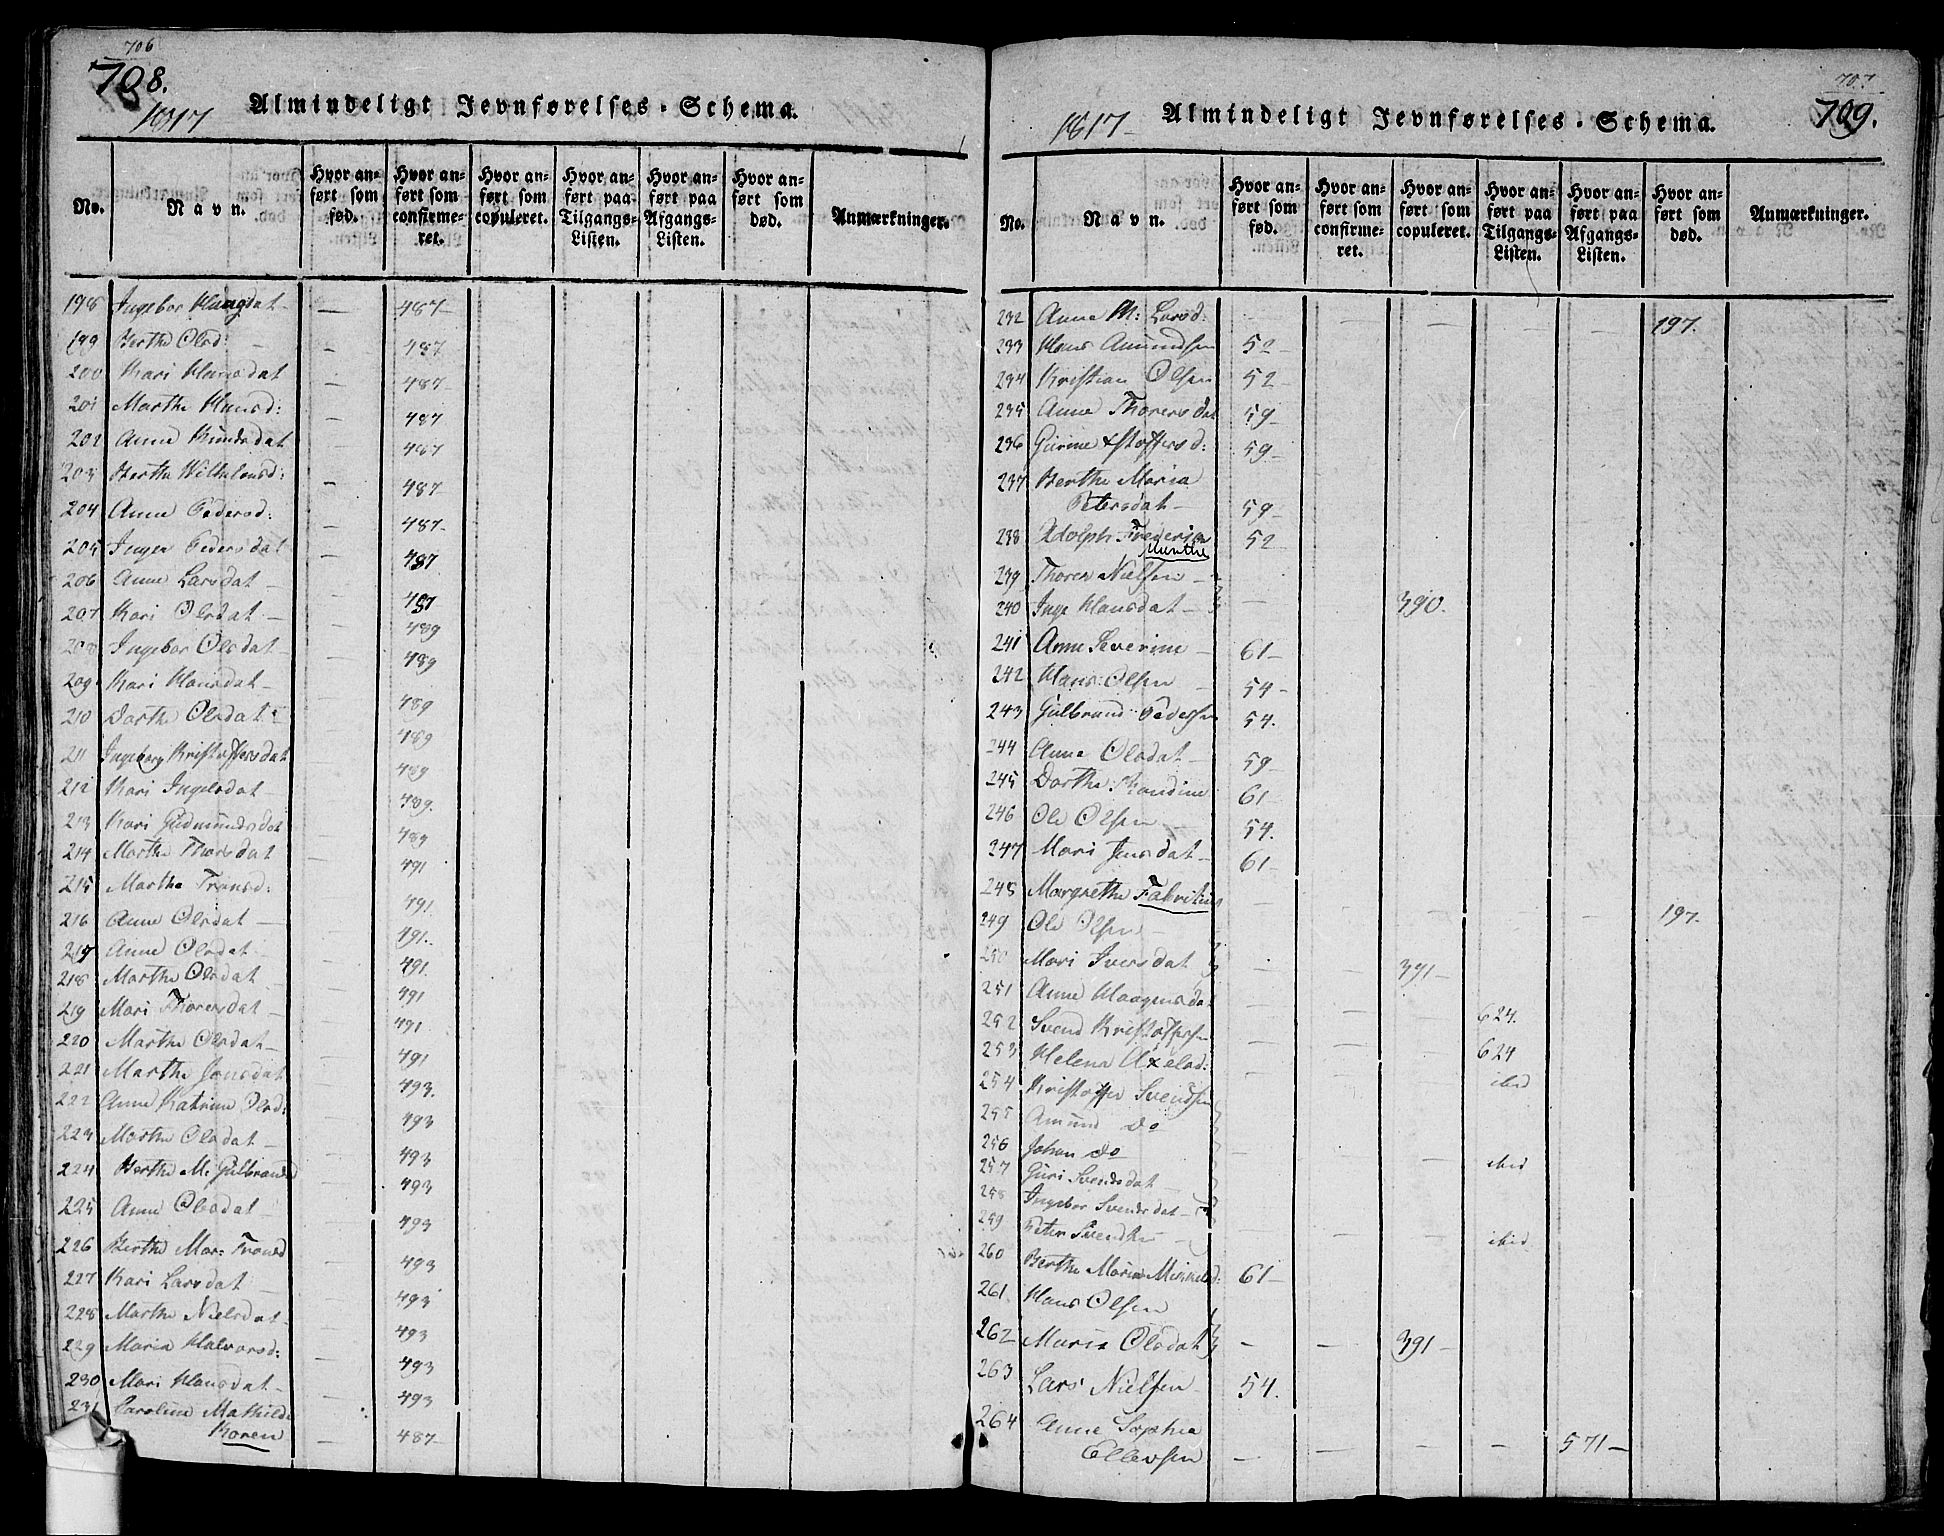 706
708.
1817
Almindeligt Jevnførelses-Schema.
No.
Navn.
Hvor anført som fød.
Hvor anført som confirmeret.
Hvor anført som copuleret.
Hvor anført paa Tilgangs-Listen.
Hvor anført paa Afgangs-Listen.
Hvor anført som død.
Anmærkninger.
198 Ingebor Haagsdat — 487
199 Berthe Olsd: — 487
200 Kari Hansdat — 487
201 Marthe Hansd: — 487
202 Anne Knudsdat — 487
203 Berthe Wilhelmsd: — 487
204 Anne Pedersd: — 487
205 Inger Pedersdat — 487
206 Anne Larsdat — 487
207 Kari Olsdat — 489
208 Ingebor Olsdat — 489
209 Kari Hansdat — 489
210 Dorthe Olsdat — 489
211 Ingeborg Kristoffersdat — 489
212 Kari Ingelsdat — 489.
213 Kari Gudmundsdat — 489
214 Marthe Thorsdat — 491
215 Marthe Tronsd: — 491
216 Anne Olsdat — 491.
217 Anne Olsdat — 491
218 Marthe Olsdat — 491
219 Mari Thorersdat — 491
220 Marthe Olsdat — 491
221 Marthe Jensdat — 493.
222 Anne Katrine Olsd: — 493
223 Marthe Olsdat — 493
224 Berthe M: Gulbrandsd — 493
225 Anne Olsdat — 493
226 Berthe Mar: Tronsd — 493
227 Kari Larsdat — 493
228 Marthe Nielsdat — 493
229 Maria Halvorsd: — 493
230 Mari Hansdat — 493
231 Caroline Mathilde
Koren — 487
707
709.
1817
Almindeligt Jevnførelses-Schema.
No.
Navn.
Hvor anført som fød.
Hvor anført som confirmeret.
Hvor anført som copuleret.
Hvor anført paa Tilgangs-Listen.
Hvor anført paa Afgangs-Listen.
Hvor anført som død.
Anmærkninger.
232 Anne M: Larsd: — — — — — 197.
233 Hans Amundsen 52
234 Kristian Olsen 52
235 Anne Thorersdat 59
236 Gurine Xstoffersd: 59
237 Berthe Maria
Petersdat 59
238 Adolph Frederich
Munthe 52
239 Thorer Nielsen
240 Inge Hansdat — — 390.
241 Anne Severine 61
242 Hans Olsen 54
243 Gulbrand Pedersen 54.
244 Anne Olsdat 59
245 Dorthe Randine 61
246 Ole Olsen 54.
247 Mari Jensdat 61
248 Margrethe Fabritius — — — — — 197.
249 Ole Olsen
250 Mari Iversdat — — 391
251 Anne Haagensdat — — — 624.
252 Svend Kristoffersen — — — 624
253 Helena Axelsd: ibid
254 Kristoffer Svendsen
255 Amund Do
256 Johan Do — — — ibid
257 Guri Svendsdat
258 Ingebor Svendsdat
259 Peter Svendsen — — — ibid
260 Berthe Maria Mimmelsd: 61
261 Hans Olsen
262 Maria Olsdat — — 391
263 Lars Nielsen 54.
264 Anne Sophia
Ellevsen — — — — 571